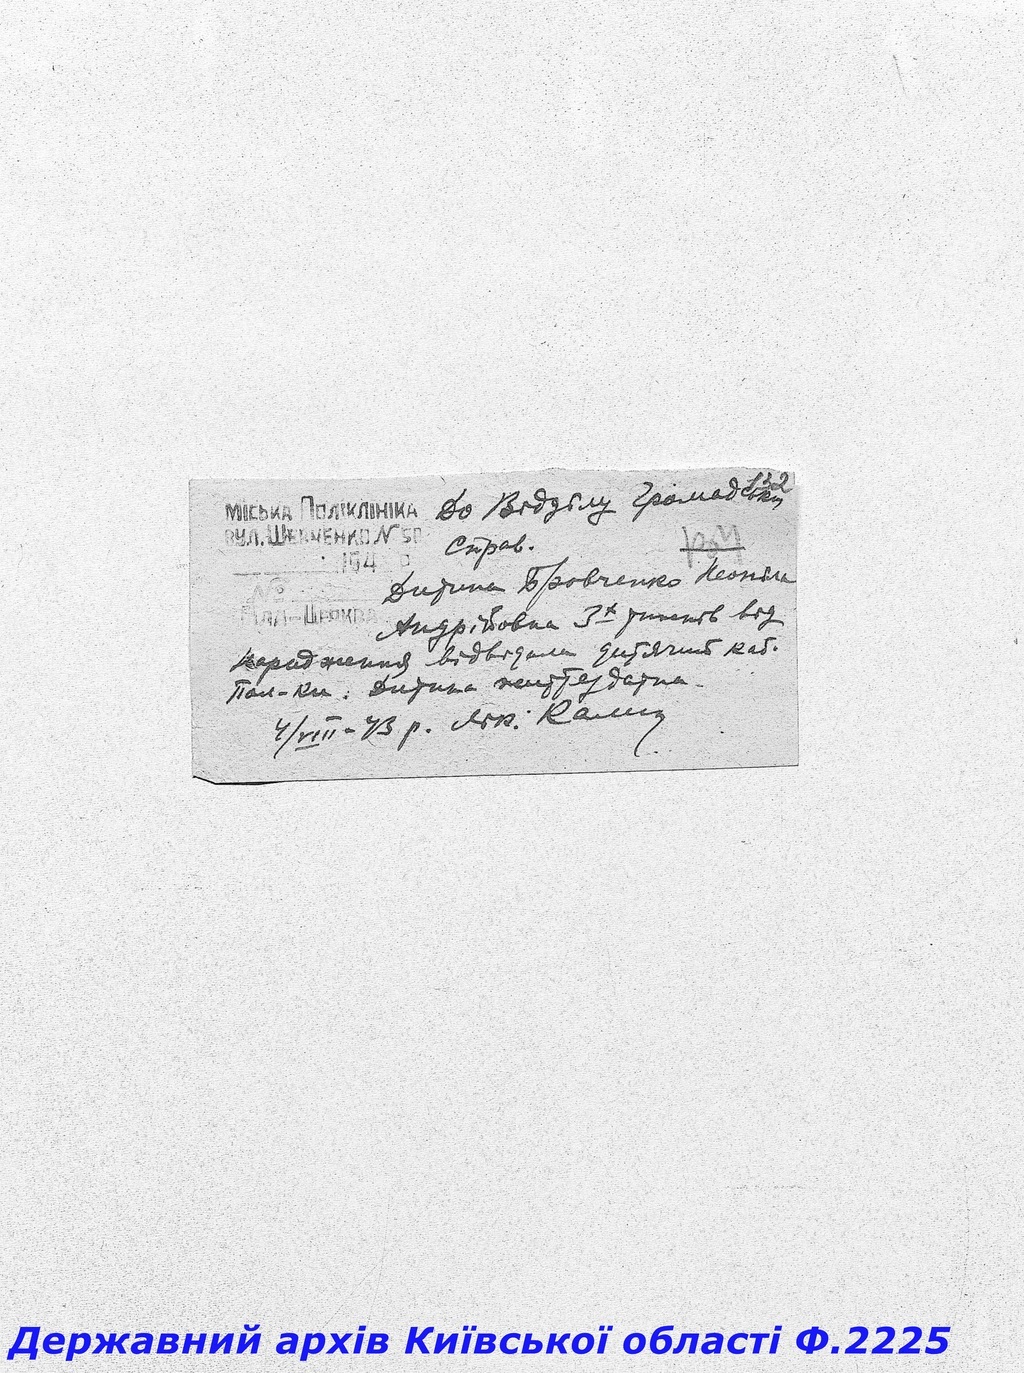 132
МІСЬКА ПОЛІКЛІНІКА
ВУЛ. ШЕВЧЕНКО № 50
194 р
№
БІЛА-ЦЕРКВА
До Відділу Громадських
Справ.
Дитина Бровченко Неоніла
Андріївна 3х тижнів від
народження відвідала дитячий каб.
Пол-ки. Дитина життєздатна.
4/VIII-43 р. Лік.
Державний архів Київської області Ф.2225